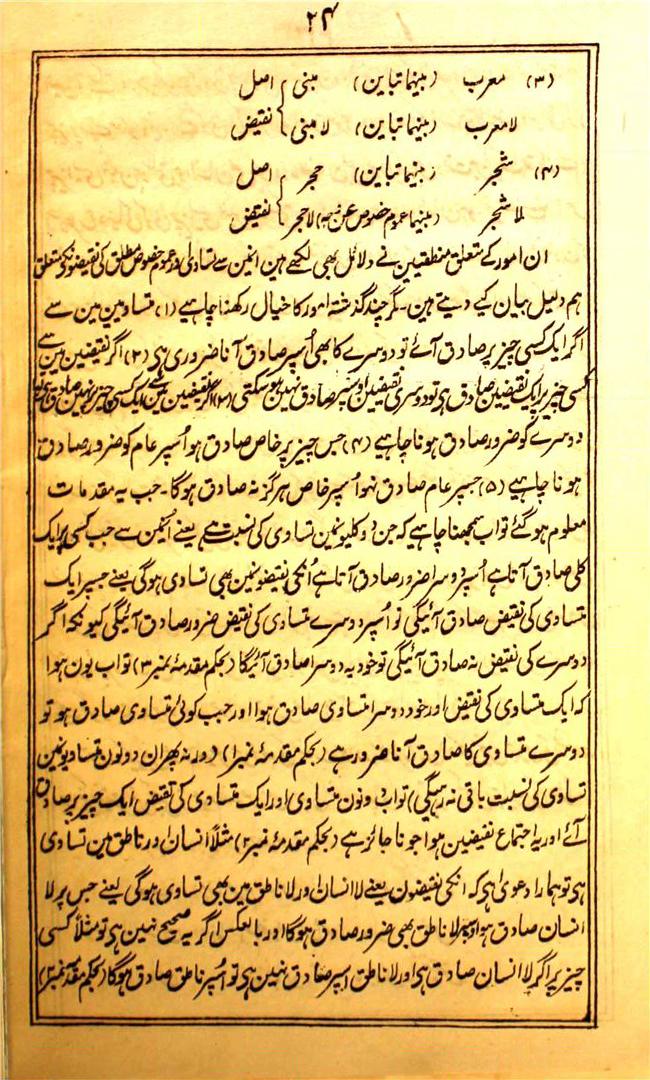 ۲۴
(۳) معرب (بینہما تباین) مبنی } اصل
لامعرب (بینہما تباین) لا مبنی } نقیض
(۴) شجر (بینہما تباین) حجر } اصل
لا شجر (بینہما عموم خصوص من وجہ) لا حجر } نقیض
ان امور کے متعلق منطقیین نے دلائل بھی لکھے ہین انمین سے تساوی اور عموم خصوص مطلق کی نقیضونکی متعلق
ہم دلیل بیان کیے دیتے ہین۔ مگر چند گذشتہ امور کا خیال رکھنا چاہیے (۱) متساویین مین سے
اگر ایک کسی چیز پر صادق آئے تو دوسرے کا بھی اُسپر صادق آنا ضروری ہی (۲) اگر نقیضین مین سے
کسی چیز پر ایک نقیضین صادق ہی تو دوسری نقیضین اوسپر صادق نہین ہو سکتی (۳) اگر نقیضین مین سے ایک کسی چیز پر نہین صادق ہی تو
دوسرے کو ضرور صادق ہونا چاہیے (۴) جس چیز پر خاص صادق ہو اُسپر عام کو ضرور صادق
ہونا چاہیے (۵) جسپر عام صادق نہو اُسپر خاص ہرگز نہ صادق ہوگا۔ جب یہ مقدمات
معلوم ہو گئے تو اب سمجھنا چاہیے کہ جن دو کلیونمین تساوی کی نسبت ہے یعنے اُنمین سے جب کسی پر ایک
کلی صادق آتا ہے اُسپر دوسرا ضرور صادق آتا ہے اُنکی نقیضونمین بھی تساوی ہوگی یعنے جسپر ایک
متساوی کی نقیض صادق آئیگی تو اُسپر دوسرے متساوی کی نقیض ضرور صادق آئیگی کیونکہ اگر
دوسرے کی نقیض نہ صادق آئیگی تو خود یہ دوسرا صادق آئیگا (بحکم مقدمۂ نمبر ۳) تو اب یون ہوا
کہ ایک متساوی کی نقیض اور خود دوسرا متساوی صادق ہوا اور جب کوئی متساوی صادق ہو تو
دوسرے متساوی کا صادق آنا ضرور ہے (بحکم مقدمۂ نمبر ۱) (ورنہ پھر ان دونون متساویونمین
تساوی کی نسبت باقی نہ رہیگی) تو اب دونون متساوی اور ایک متساوی کی نقیض ایک چیز پر صادق
آئے اور یہ اجتماع نقیضین ہوا جو نا جائز ہے (بحکم مقدمۂ نمبر ۲) مثلاً انسان اور ناطق مین تساوی
ہی تو ہمارا دعویٰ ہی کہ انکی نقیضون یعنے لا انسان اور لا ناطق مین بھی تساوی ہوگی یعنے جس پر لا
انسان صادق ہو اوسپر لا ناطق بھی ضرور صادق ہوگا اور بالعکس اگر یہ صحیح نہین ہی تو مثلاً کسی
چیز پر اگر لا انسان صادق ہی اور لا ناطق اسپر صادق نہین ہی تو اُسپر ناطق صادق ہوگا (بحکم مقدمہ نمبر ۳)